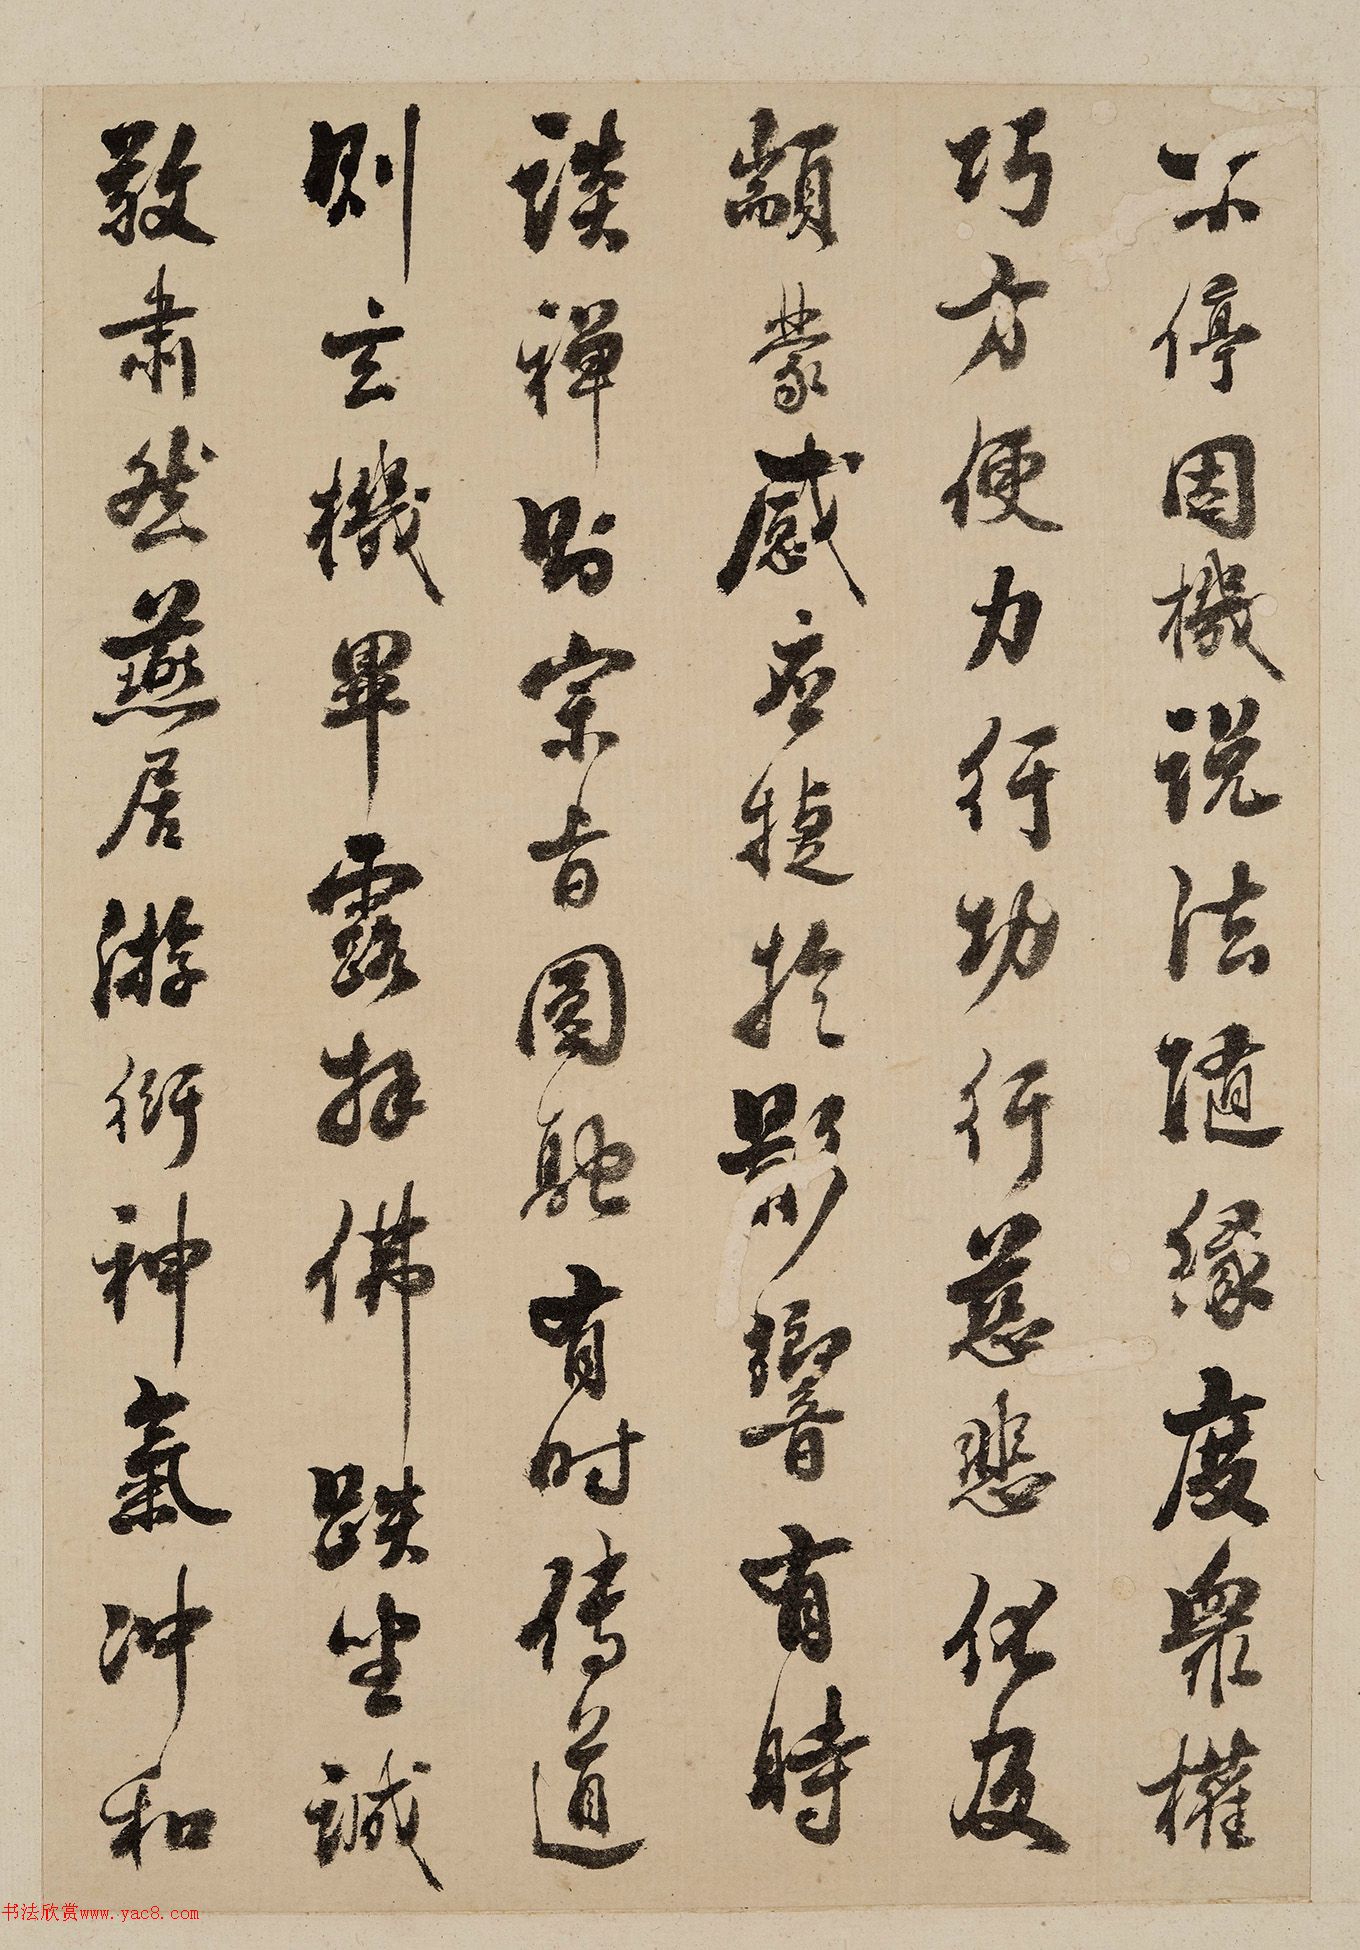 不停因機說法隨緣度衆權
巧方便力行功行慈悲化及
顓蒙感应捷於影響有時
談禪則宗旨圓融有时傳道
則玄機畢露拜佛趺坐誠
敬肃然燕居游衍神氣冲和
书法欣赏www.yac8.com